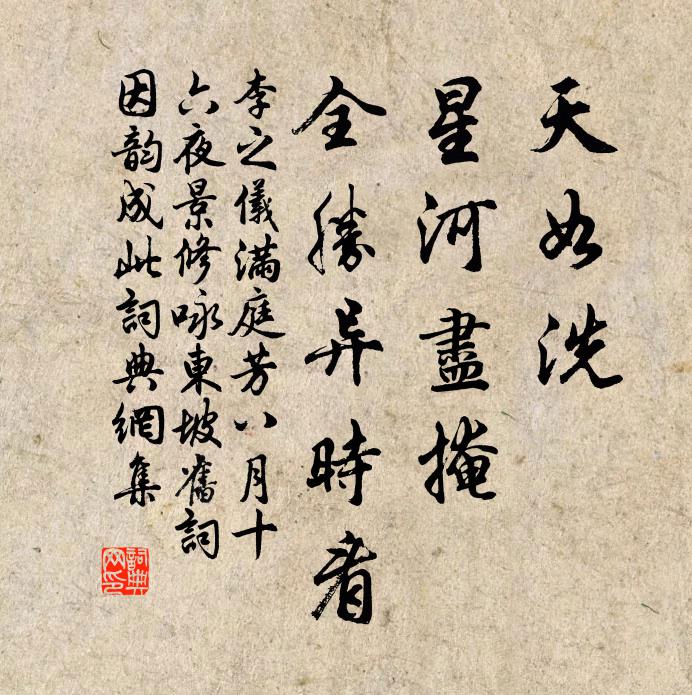 天如洗
星河盡掩
全勝异時看
李之儀滿庭芳八月十
六夜景修咏東坡舊詞
因韵成此詞典網集
詞典
网印